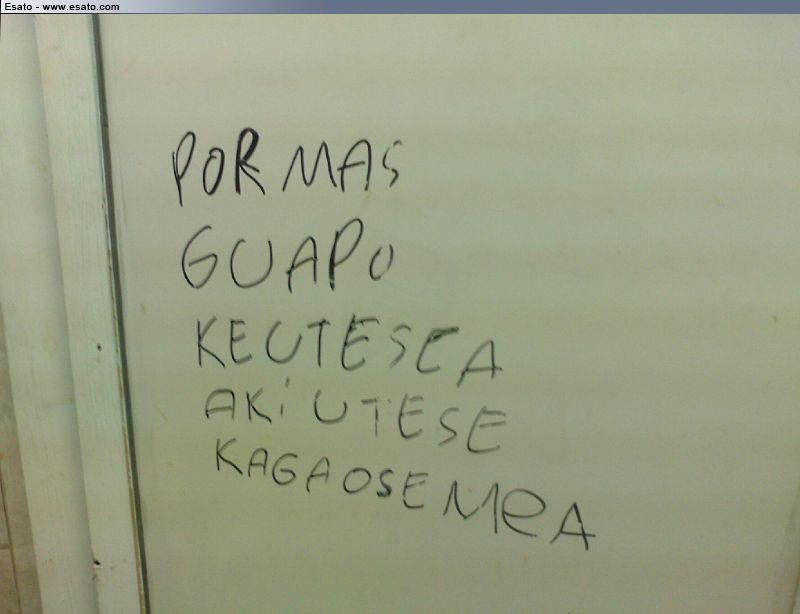 Esato - www.esato.com
POR MAS
GUAPO
KEUTESEA
AKi UTESE
KAGAOSE MeA